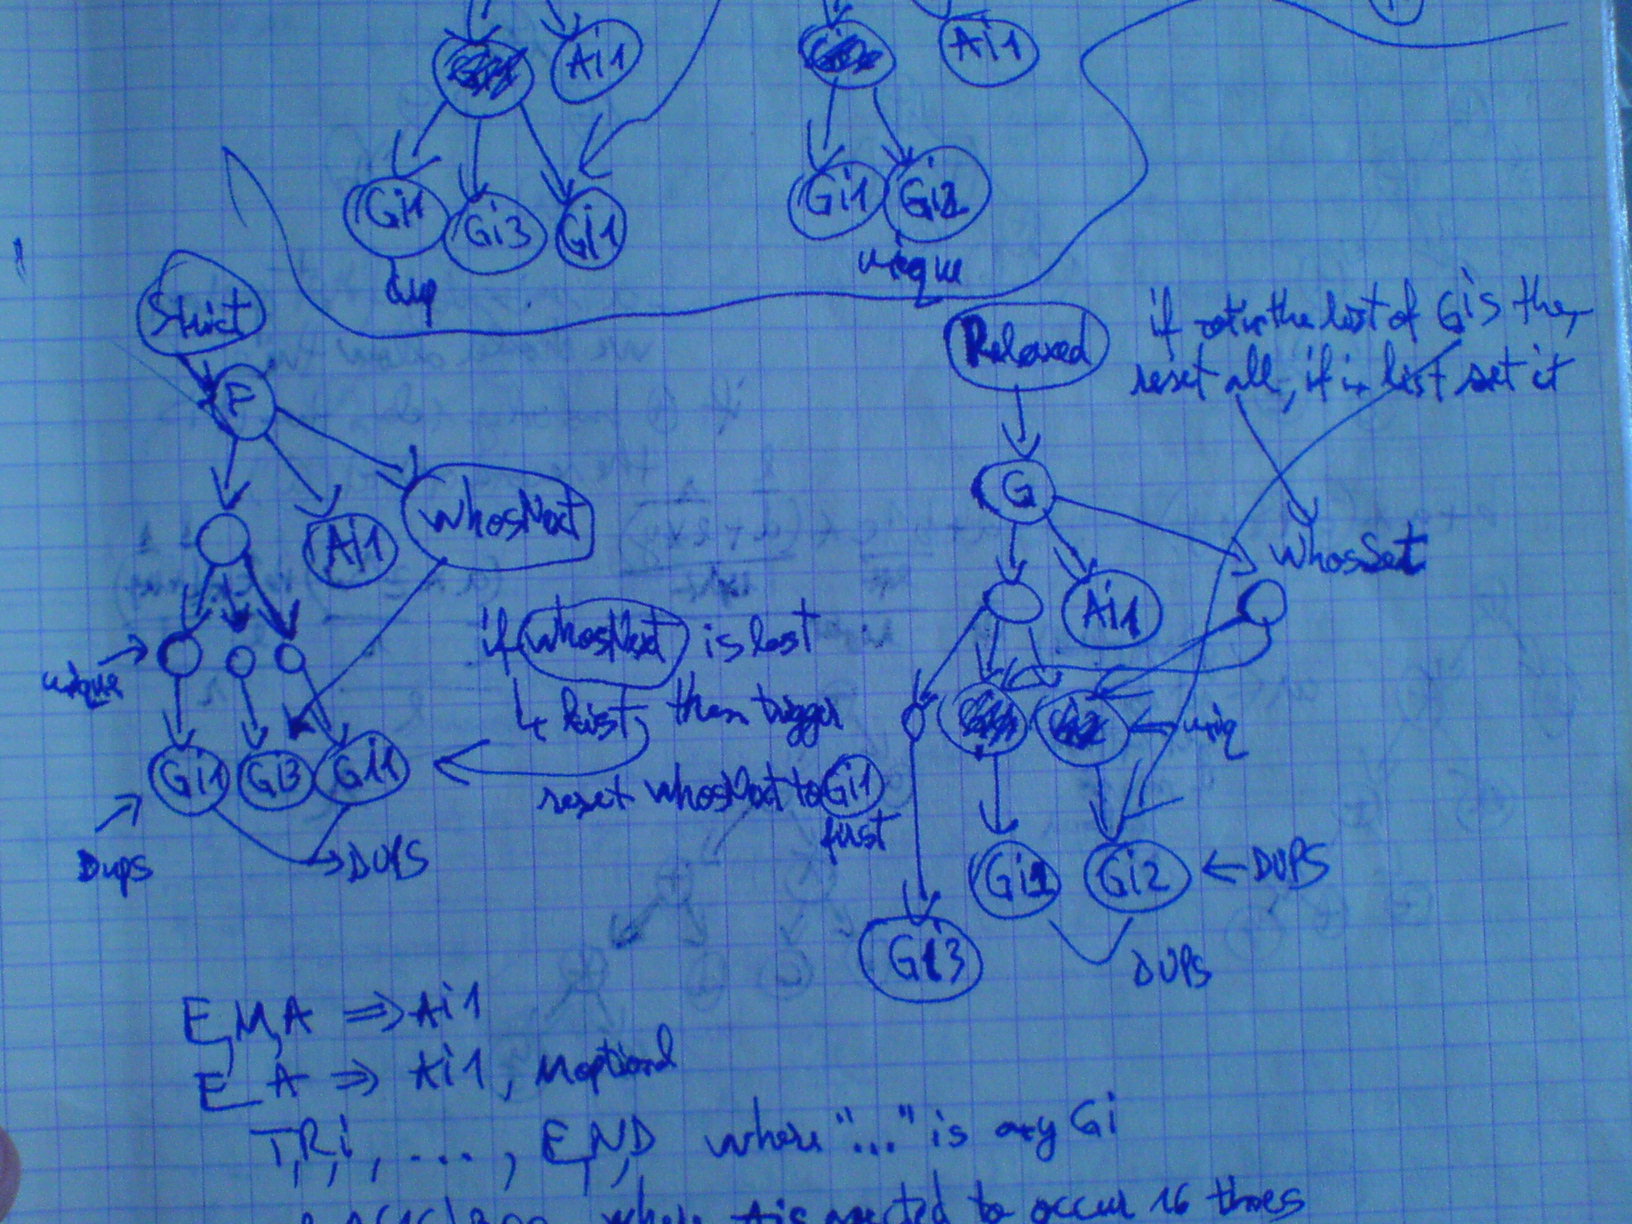 Ai1
Ai1
Gi1 Gi3 Gi1
dup
Gi1 Gi2
unique
Strict
F
Ai1
WhosNext
unique
Gi1 Gi3 Gi1
Dups
DUPS
if WhosNext is last
list, then trigger
reset whosNext to Gi1
first
Relaxed
if not in the list of Gis then
reset all, if in list set it
G
Ai1
WhosSet
uniq
Gi2
DUPS
Gi3
DUPS
E,M,A ⇒ Ai1
E A ⇒ Ai1, M optional
T,R,i, ..., E,N,D where "..." is any Gi
where A is expected to occur 16 times